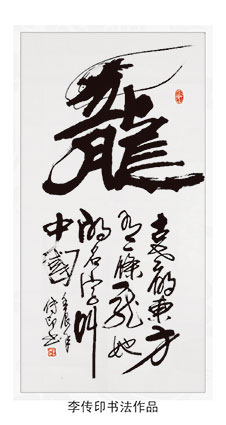 龍
古老的東方
有一條龍她
的名字叫
中國
壬辰年
传印书
李传印书法作品